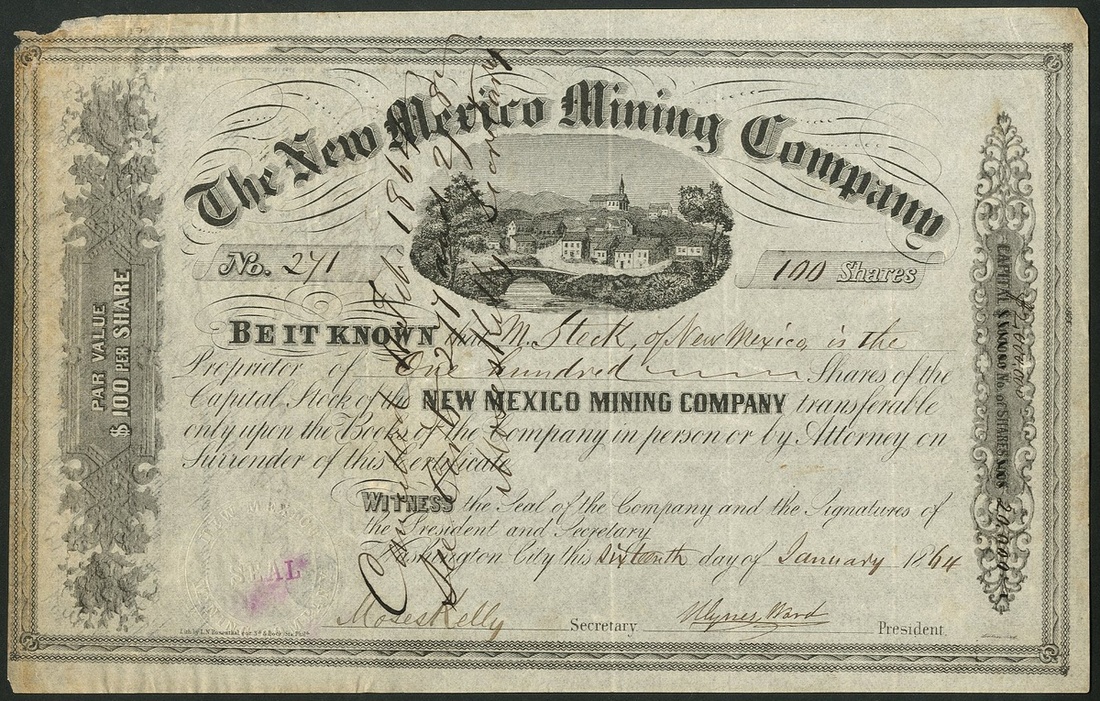 The New Mexico Mining Company
No. 271
100 Shares
BE IT KNOWN that M. Steck, of New Mexico, is the
Proprietor of One hundred Shares of the
Capital Stock of the NEW MEXICO MINING COMPANY transferable
only upon the Books of the Company in person or by Attorney on
Surrender of this Certificate
WITNESS the Seal of the Company and the Signatures of
the President and Secretary
Washington City this sixteenth day of January 1864
Moses Kelly Secretary
Ulysses Ward President.
PAR VALUE
$100 PER SHARE
CAPITAL $ No. of SHARES 20,000
Cancelled Feb. 1864
Moses Kelly Secretary
SEAL
NEW MEXICO
Lith by L.N. Rosenthal